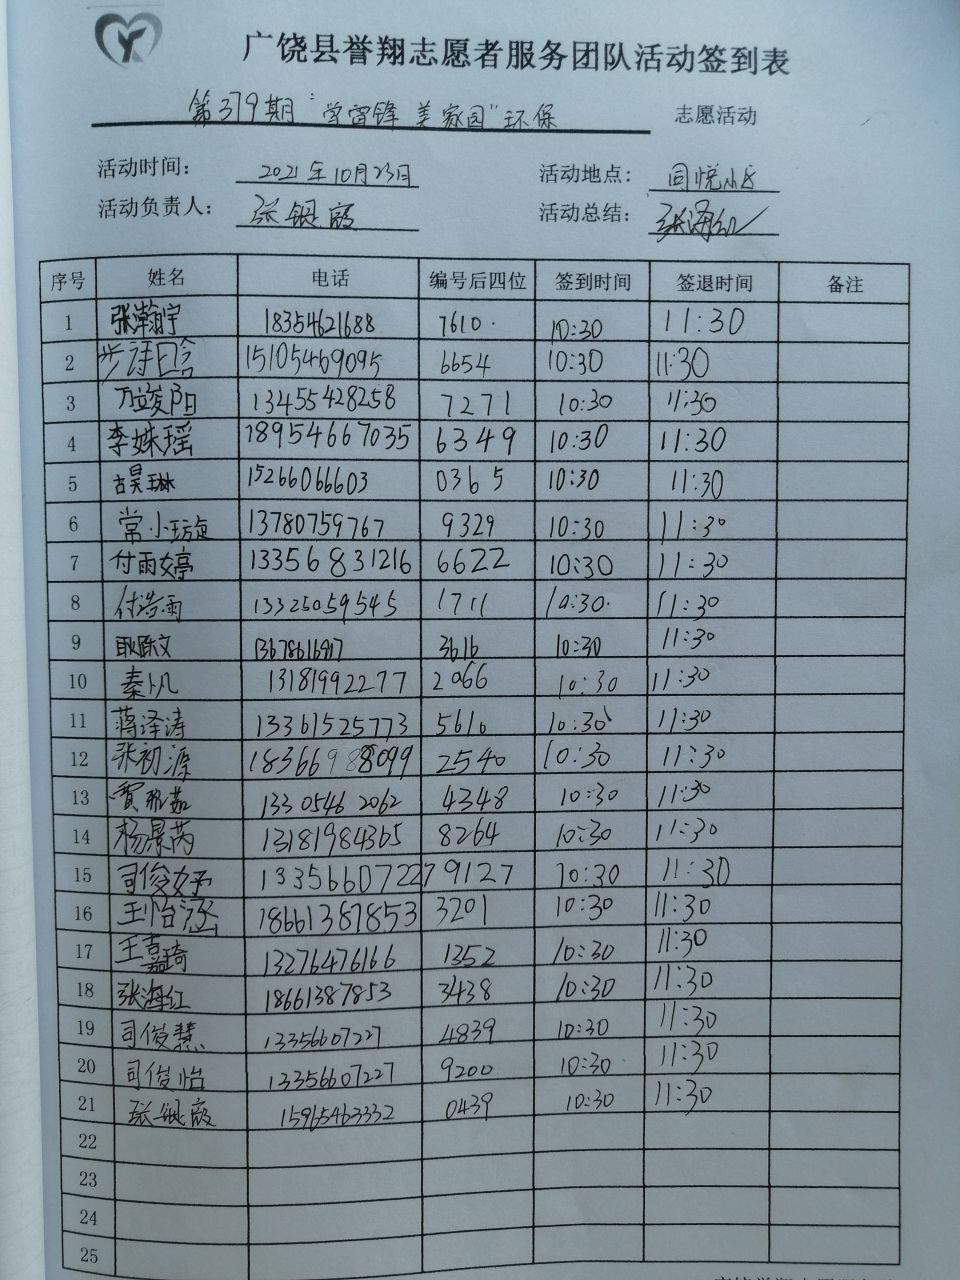 广饶县誉翔志愿者服务团队活动签到表
第379期 "学雷锋 美家园" 环保 志愿活动
活动时间: 2021年10月23日 活动地点: 同悦小区
活动负责人: 张银霞 活动总结: 张海红
序号 姓名 电话 编号后四位 签到时间 签退时间 备注
1 张瀚宇 18354621688 7610 10:30 11:30
2 步诗晗 15105469095 6654 10:30 11:30
3 万竣阳 13455428258 7271 10:30 11:30
4 李姝瑶 18954667035 6349 10:30 11:30
5 古昊琳 15266066603 0365 10:30 11:30
6 常小琁 13780759767 9329 10:30 11:30
7 付雨婷 13356831216 6622 10:30 11:30
8 付浩雨 13325059545 1711 10:30 11:30
9 耿际文 3616 10:30 11:30
10 秦卜凡 13181992277 2066 10:30 11:30
11 蒋泽涛 13361525773 5610 10:30 11:30
12 张初源 18366988099 2540 10:30 11:30
13 贾 茹 13305462062 4348 10:30 11:30
14 杨景芮 13181984365 8264 10:30 11:30
15 司俊妤 13356607227 9127 10:30 11:30
16 王怡涵 18661387853 3201 10:30 11:30
17 王嘉琦 13276476166 1352 10:30 11:30
18 张海红 18661387853 3438 10:30 11:30
19 司俊慧 13356607227 4839 10:30 11:30
20 司俊怡 13356607227 9200 10:30 11:30
21 张银霞 15965463332 0439 10:30 11:30
22
23
24
25